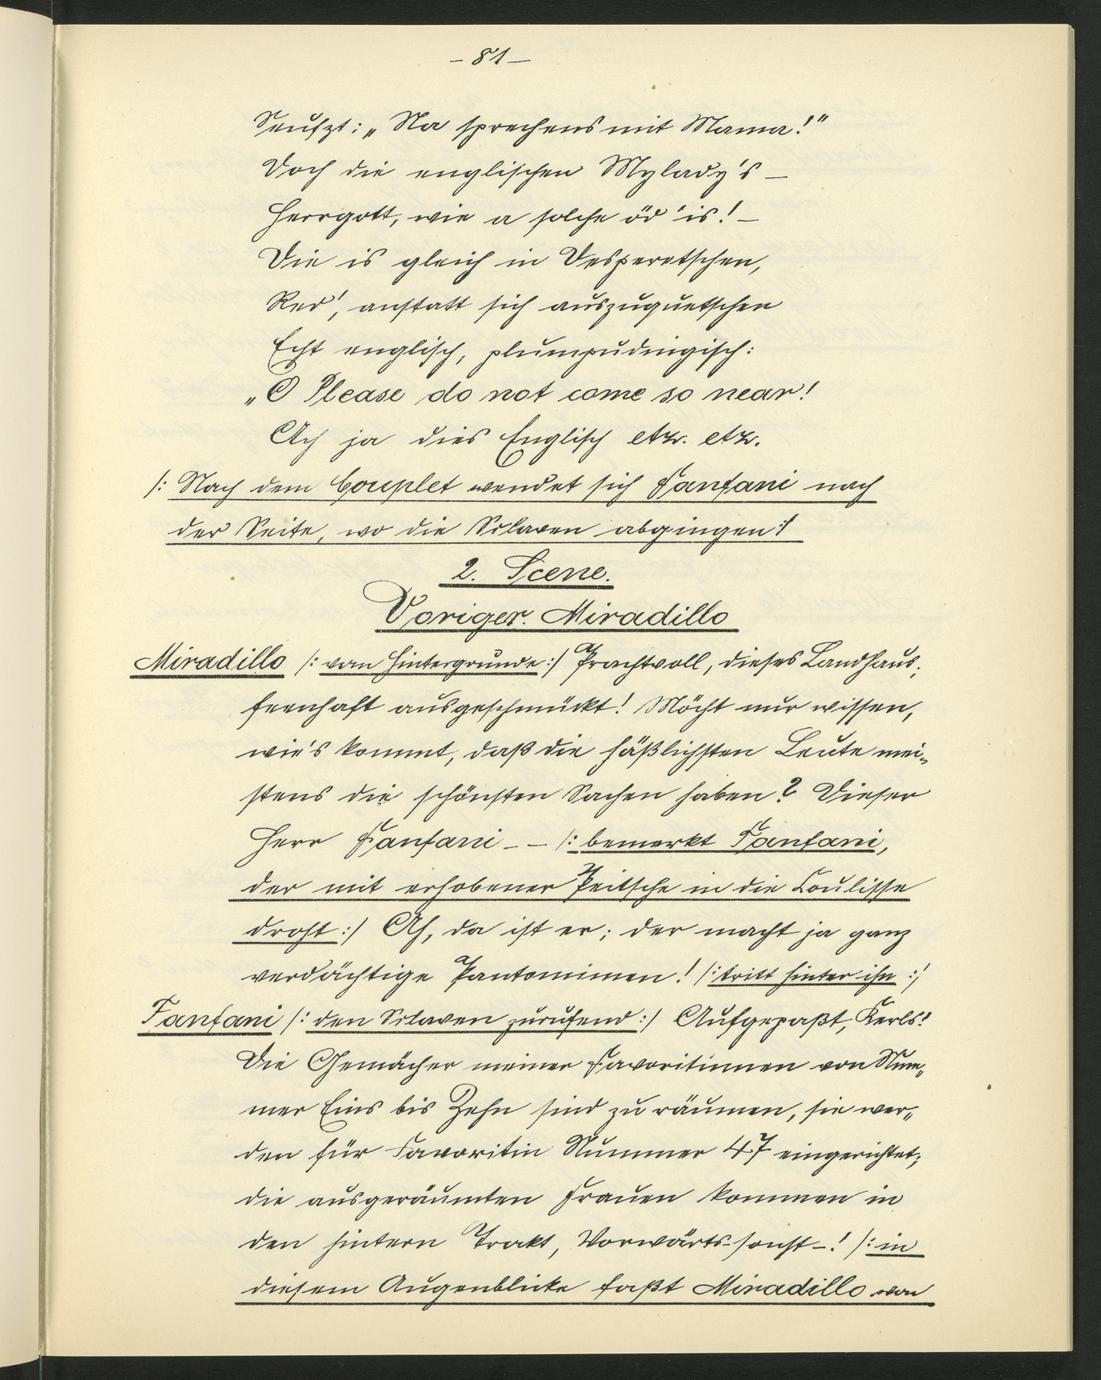 - 81 -
Seufzt: „Na sprechens mit Mama!"
Doch die englischen Mylady's -
Herrgott, wie a solche öd' is! -
Die is gleich in Desperetschen,
Red', anstatt sich auszuquetschen
Echt englisch, plumpudingisch:
„O Please do not come so near!
Ach ja dies Englisch etz. etz.
/: Nach dem Couplet wendet sich Fanfani nach
der Seite, wo die Sclaven abgingen :/
2. Scene.
Voriger. Miradillo
Miradillo /: vom Hintergrunde :/ Prachtvoll, dieses Landhaus;
feenhaft ausgeschmückt! Möcht nur wissen,
wie's kommt, daß die häßlichsten Leute mei„
stens die schönsten Sachen haben? Dieser
Herr Fanfani - - /: bemerkt Fanfani,
der mit erhobener Peitsche in die Coulisse
droht :/ Ah, da ist er; der macht ja ganz
verdächtige Pantomimen! /: tritt hinter ihn :/
Fanfani /: den Sclaven zurufend :/ Aufgepaßt, Kerls!
Die Gemächer meiner Favoritinnen von Num„
mer Eins bis Zehn sind zu räumen, sie wer„
den für Favoritin Nummer 47 eingerichtet;
die ausgeräumten Frauen kommen in
den hintern Trakt, Vorwärts - sonst -! /: in
diesem Augenblicke faßt Miradillo von